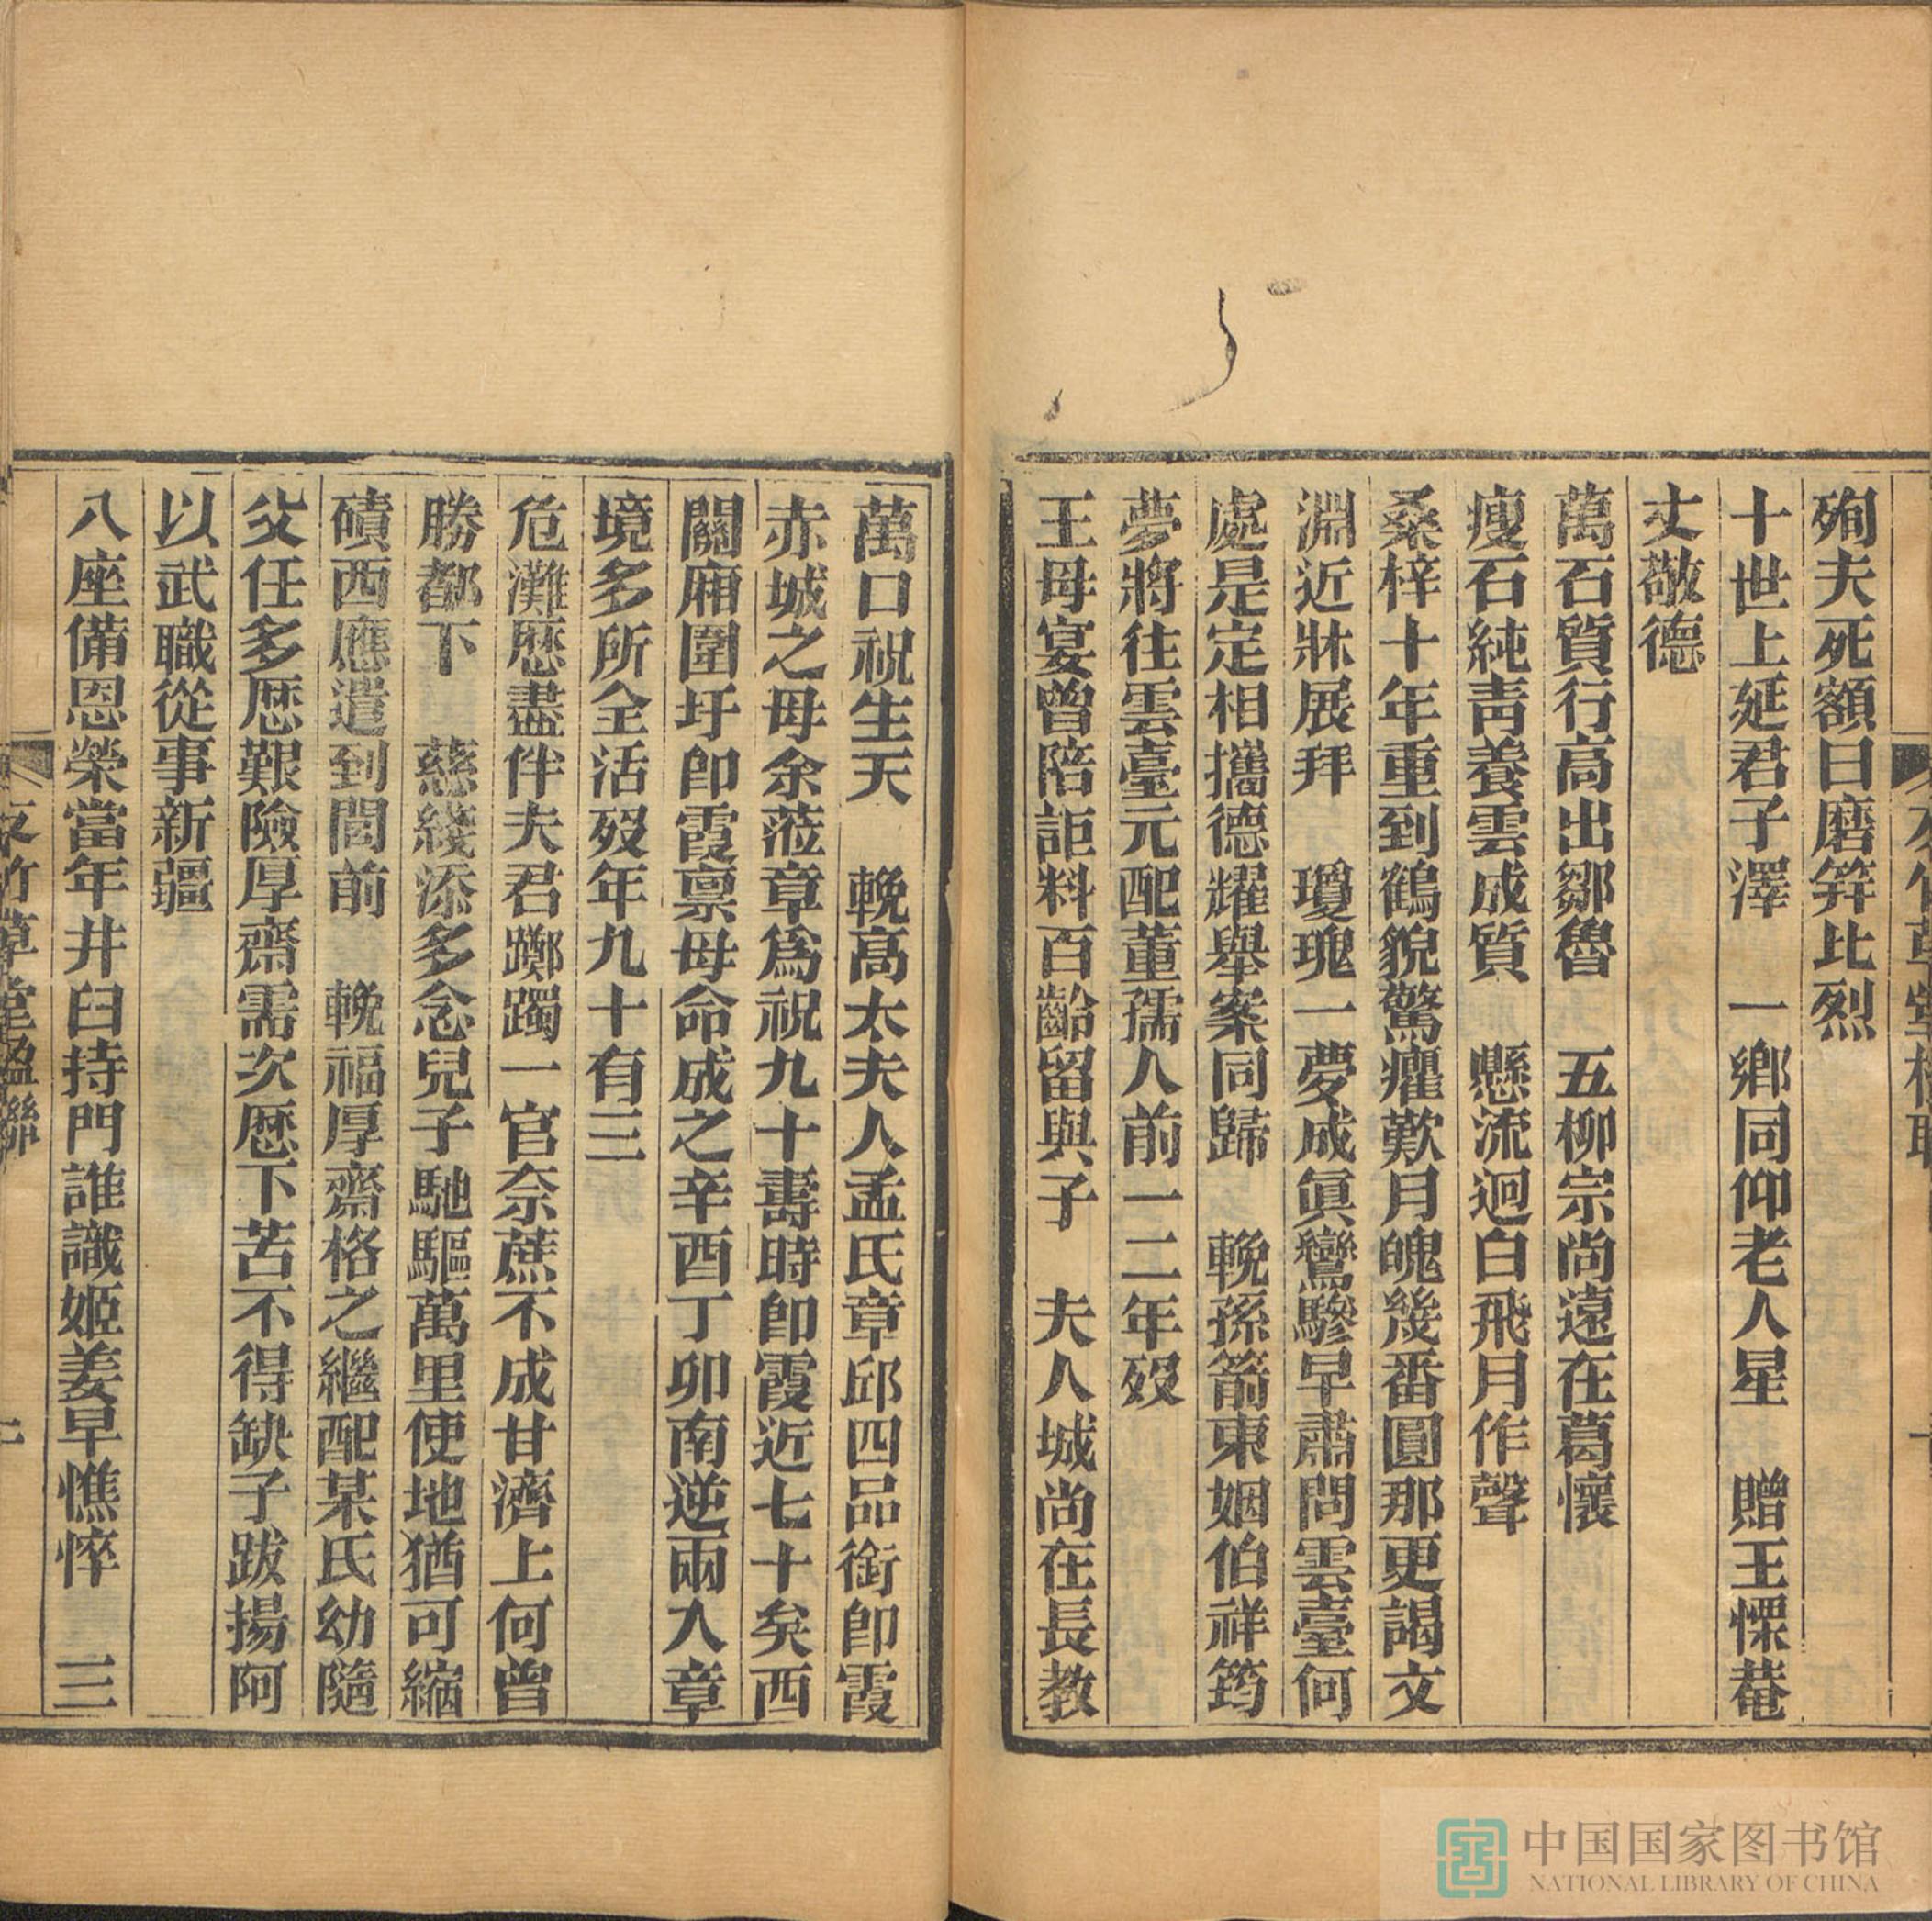 殉夫死額曰磨笄比烈
十世上延君子澤　一鄉同仰老人星　贈王慄菴
丈敬德
萬石質行高出鄒魯　五柳宗尚遠在葛懷
瘦石純靑養雲成質　懸流迥白飛月作聲
桑梓十年重到鶴貌驚癯歎月魄幾番圓那更謁文
淵近牀展拜　瓊瑰一夢成眞鸞驂早肅問雲臺何
處是定相攜德耀舉案同歸　輓孫箭東姻伯祥筠
夢將往雲臺元配董孺人前一二年歿
王母宴曾陪詎料百齡留與子　夫人城尚在長教
萬口祝生天　輓高太夫人孟氏章邱四品銜卽霞
赤城之母余蒞章爲祝九十壽時卽霞近七十矣西
關廂圍圩卽霞禀母命成之辛酉丁卯南逆兩入章
境多所全活歿年九十有三
危灘歷盡伴夫君躑躅一官奈蔗不成甘濟上何曾
勝都下　慈綫添多念兒子馳驅萬里使地猶可縮
磧西應遣到閭前　輓福厚齋格之繼配某氏幼隨
父任多歷艱險厚齋需次歷下苦不得缺子跋揚阿
以武職從事新疆
八座備恩榮當年井臼持門誰識姬姜早憔悴　三
竹草堂楹聯
中国国家图书馆
NATIONAL LIBRARY OF CHINA